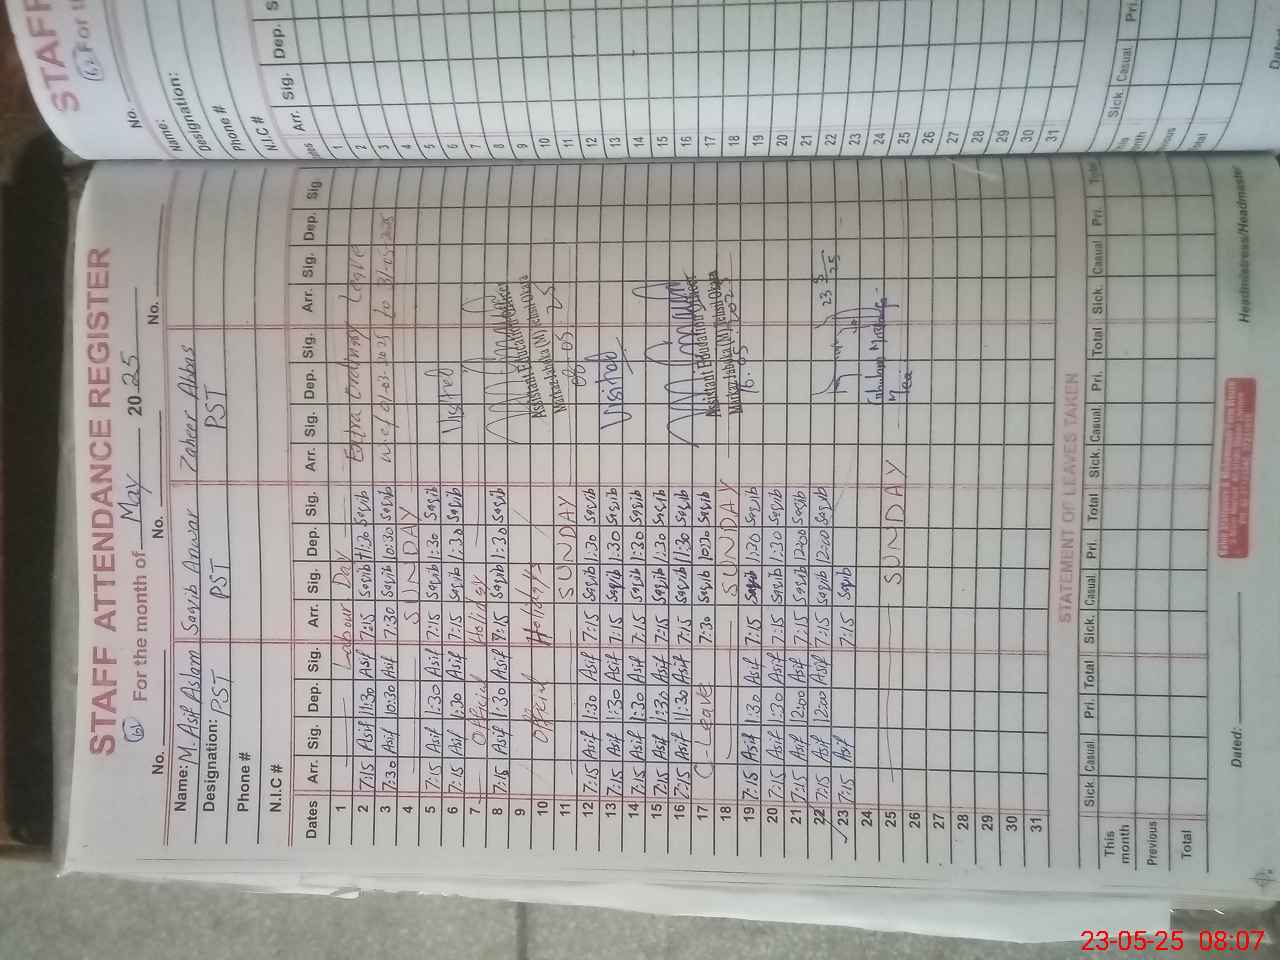 STAFF ATTENDANCE REGISTER
62 For the month of May 2025
No. No. No.
Name: M. Asif Aslam Saqib Anwar Zaheer Abbas
Designation: PST PST PST
Phone #
N.I.C #
Dates Arr. Sig. Dep. Sig. Arr. Sig. Dep. Sig. Arr. Sig. Dep. Sig. Arr. Sig. Dep. Sig.
1 Labour Day
2 7:15 Asif 11:30 Asif 7:15 Saqib 11:30 Saqib Extra Ordinary Leave
3 7:30 Asif 10:30 Asif 7:30 Saqib 10:30 Saqib w.e.f 01-03-2025 to 31-05-2025
4 SUNDAY
5 7:15 Asif 1:30 Asif 7:15 Saqib 1:30 Saqib
6 7:15 Asif 1:30 Asif 7:15 Saqib 1:30 Saqib Visited
7 Official Holiday
8 7:15 Asif 1:30 Asif 7:15 Saqib 1:30 Saqib
9 Assistant Education Officer
10 Official Holidays Markaz Jabuka (M) Tehsil Okara
11 SUNDAY 08.05.25
12 7:15 Asif 1:30 Asif 7:15 Saqib 1:30 Saqib
13 7:15 Asif 1:30 Asif 7:15 Saqib 1:30 Saqib Visited
14 7:15 Asif 1:30 Asif 7:15 Saqib 1:30 Saqib
15 7:15 Asif 1:30 Asif 7:15 Saqib 1:30 Saqib
16 7:15 Asif 11:30 Asif 7:15 Saqib 11:30 Saqib
17 C-Leave 7:30 Saqib 10:30 Saqib Assistant Education Officer
18 SUNDAY Markaz Jabuka (M) Tehsil Okara
16.05.2025
19 7:15 Asif 1:30 Asif 7:15 Saqib 1:30 Saqib
20 7:15 Asif 1:30 Asif 7:15 Saqib 1:30 Saqib
21 7:15 Asif 12:00 Asif 7:15 Saqib 12:00 Saqib
22 7:15 Asif 12:00 Asif 7:15 Saqib 12:00 Saqib 23 5/25
23 7:15 Asif 7:15 Saqib
24
25 SUNDAY
26
27
28
29
30
31
STATEMENT OF LEAVES TAKEN
Sick. Casual Pri. Total Sick. Casual Pri. Total Sick. Casual Pri. Total Sick. Casual Pri. Total
This month
Previous
Total
Dated: Headmistress/Headmaster
STAFF
62 For th
No.
Name:
Designation:
Phone #
N.I.C #
Arr. Sig. Dep. S
1
2
3
4
5
6
7
8
9
10
11
12
13
14
15
16
17
18
19
20
21
22
23
24
25
26
27
28
29
30
31
Sick. Casual Pri.
23-05-25 08:07